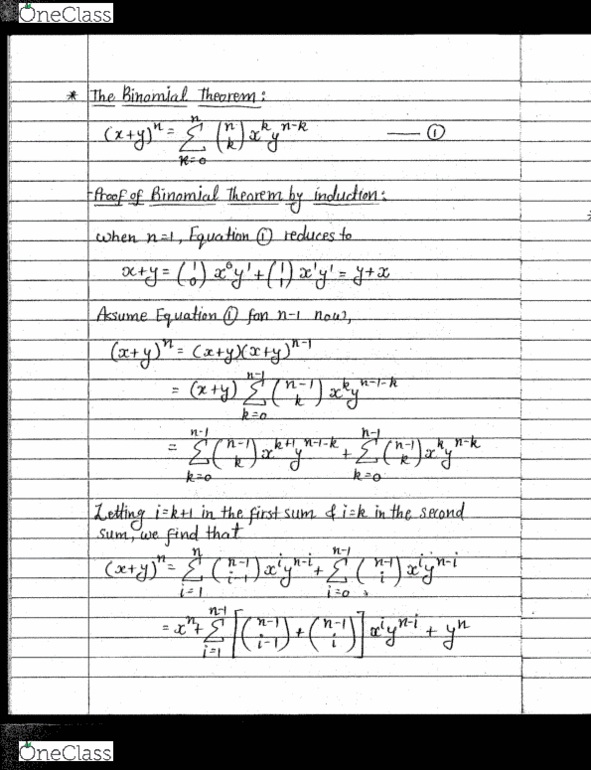 OneClass
* The Binomial Theorem:
(x+y)^n = Σ_{k=0}^{n} (n k) x^k y^{n-k} —— ①
Proof of Binomial Theorem by induction:
when n=1, Equation ① reduces to
x+y = (1 0) x^0 y^1 + (1 1) x^1 y^1 = y+x
Assume Equation ① for n-1 now,
(x+y)^n = (x+y)(x+y)^{n-1}
= (x+y) Σ_{k=0}^{n-1} (n-1 k) x^k y^{n-1-k}
= Σ_{k=0}^{n-1} (n-1 k) x^{k+1} y^{n-1-k} + Σ_{k=0}^{n-1} (n-1 k) x^k y^{n-k}
Letting i=k+1 in the first sum & i=k in the second
sum, we find that
(x+y)^n = Σ_{i=1}^{n} (n-1 i-1) x^i y^{n-i} + Σ_{i=0}^{n-1} (n-1 i) x^i y^{n-i}
= x^n + Σ_{i=1}^{n-1} [(n-1 i-1) + (n-1 i)] x^i y^{n-i} + y^n
OneClass